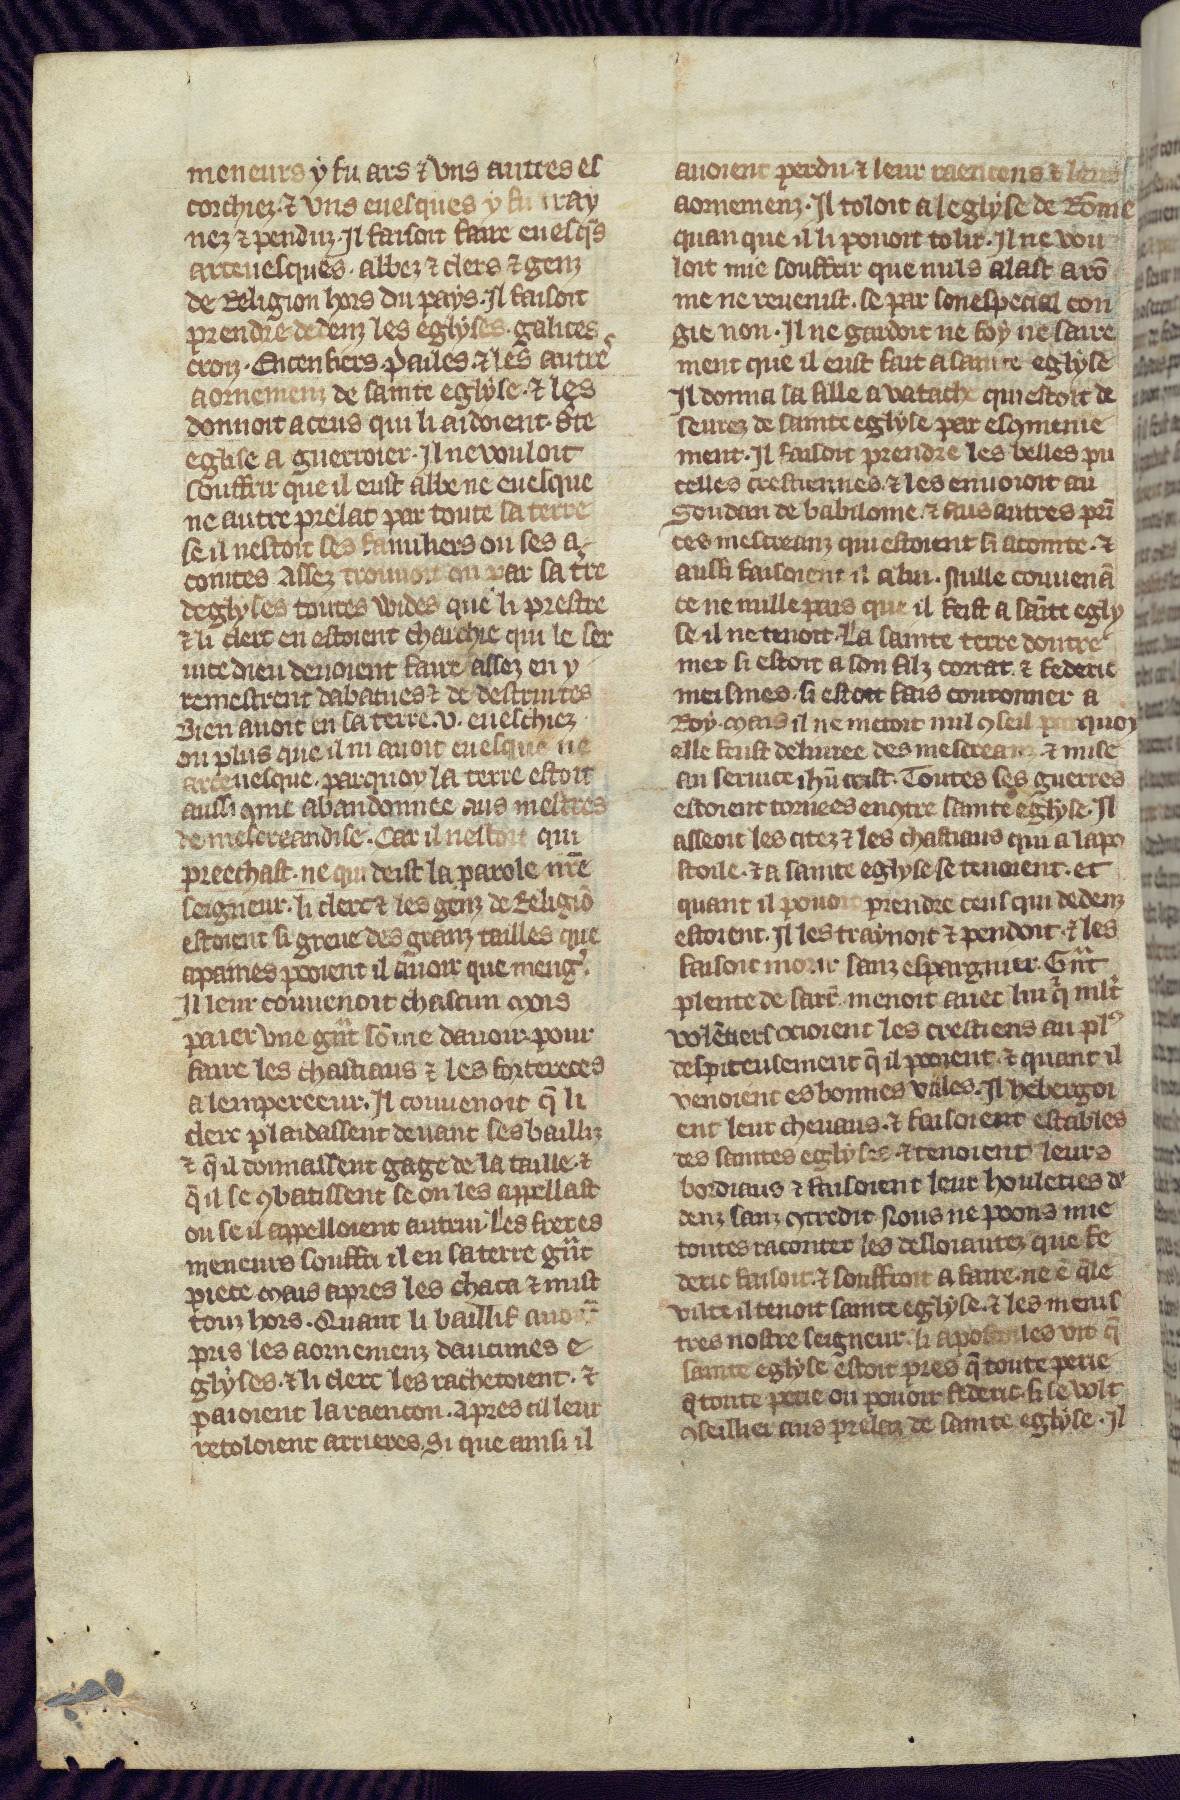 meneurs y fu ars ⁊ vns autres es
corchiez ⁊ vns euesques y fu tray
nez ⁊ penduz. Il faisoit faire euesqs̄
arceuesques. abbez ⁊ clers ⁊ genz
de Religion hors du pays. Il faisoit
prendre dedenz les eglyses. galices
croiz. Encenkiers. Pailes. ⁊ les autrs̄
aornemenz de sainte eglyse. ⁊ les
donnoit a ceus qui li aidoient. Ste
eglise a guerroier. Il ne vouloit
souffrir que il eust abbe ne euesque
ne autre prelat par toute sa terre
se il nestoit ses familiers ou ses a
comtes Assez trouuoit on par sa tr̄e
deglyses toutes wides que li prestre
⁊ li clerc en estoient chachie qui le ser
uice dieu deuoient faire assez en y
remestrent dabatues ⁊ de destruites
Bien auoit en sa terre .v. eueschiez
ou plus que il ni auoit euesque ne
arceuesque. parquoy la terre estoit
aussi ꝯme abandonnee aus mestres
de mescreandise. Car il nestoit qui
preechast. ne qui deist la parole nr̄e
seigneur. li clerc ⁊ les genz de Religiō
estoient si greue des granz tailles que
apaines pooient il auoir que meng̓.
Il leur couuenoit chascun mois
paier vne gn̄t sōme dauoir pour
faire les chastiaus ⁊ les forterecés
a lempereeur. Il couuenoit q̄ li
clerc plaidassent deuant ses bailliz
⁊ q̄ il donnassent gage de la taille. ⁊
q̄ il se ꝯbatissent se on les appellast
ou se il appelloient autrui. Les freres
meneurs souffri il en sa terre gn̄t
piece mais apres les chaca ⁊ mist
touz hors. Quant li baillif
pris les aornemenz daucunes e
glyses. ⁊ li clerc les rachetoient. ⁊
paioient la raencon. Apres cil leur
retoloient arrieres. Si que ainsi il
auoient perdu ⁊ leur raencons ⁊ leurs
aornemenz. Il toloit a leglyse de Rōme
quanque il li pouoit tolir. Il ne vou
loit mie souffrir que nuls alast a rō
me ne reuenist. se par son especial con
gie non. Il ne gardoit ne foy ne saire
ment que il eust fait a sainte eglyse
Il donna sa fille a vatache qui estoit de
seurez de sainte eglyse par esqmenie
ment. Il faisoit prendre les belles pu
celles crestiennes. ⁊ les enuoioit au
Soudan de babiloine. ⁊ aus autres prī
ces mescreanz qui estoient si acointe. ⁊
aussi faisoient il a lui. Nulle conuenā
ce ne nulle pais que il feist a sāte egly
se il ne tenoit. La sainte terre doutre
mer si estoit a son filz corrat. ⁊ federic
meismes. si estoit fais couronner a
Roy. mais il ne metoit nul ꝯseil par quoy
elle feust deliuree des mescreanz. ⁊ mise
au seruice ihū crist. Toutes ses guerres
estoient tornees encꝯtre sainte eglyse. Il
asseoit les citez ⁊ les chastiaus qui a lapo
stoile. ⁊ a sainte eglyse se tenoient. et
quant il pouoit prendre ceus qui dedenz
estoient. Il les traynoit ⁊ pendoit. ⁊ les
faisoit morir sanz espargnier. Gn̄t
plente de sarr̄. menoit auec lui q̄ mlt̄
volētiers ocioient les crestiens au pl⁹
despiteusement q̄ il pooient. ⁊ quant il
venoient es bonnes villes. Il hebergoi
ent leur cheuaus. ⁊ faisoient estables
des saintes eglyses. ⁊ tenoient leurs
bordiaus ⁊ faisoient leur houleries de
denz sanz ꝯtredit. Nous ne poons mie
toutes raconter les desloiautez que fe
deric faisoit. ⁊ souffroit a faire. ne ē q̄le
vilte il tenoit sainte eglyse. ⁊ les menis
tres nostre seigneur. li apostoiles vit q̄
sainte eglyse estoit pres q̄ toute perie
q̄ toute perie ou pouoir federic. si se volt
ꝯseillier aus prelaz de sainte eglyse. Il